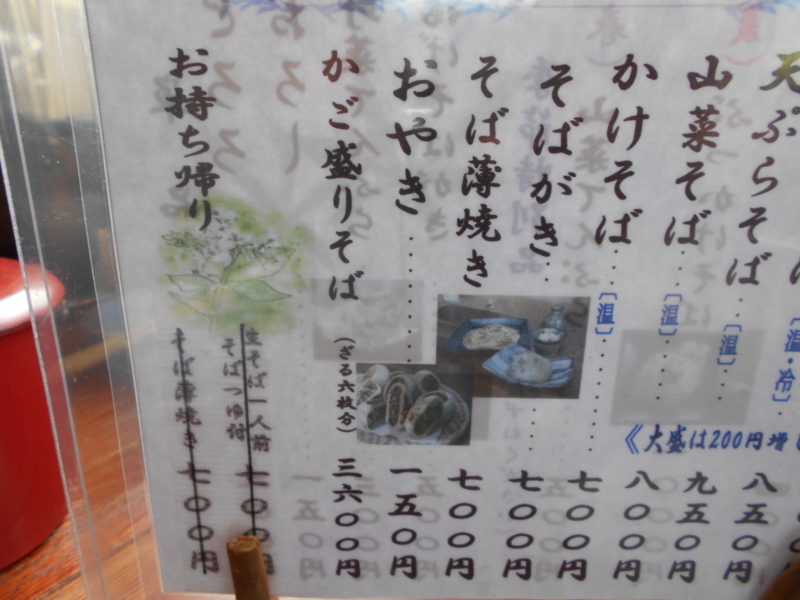 〔温・冷〕八五〇円
天ぷらそば〔温〕九五〇円
山菜そば〔温〕八〇〇円
かけそば〔温〕七〇〇円
《大盛は200円増し
そばがき 七〇〇円
そば薄焼き 七〇〇円
おやき 一五〇円
かご盛りそば（ざる六枚分）三六〇〇円
お持ち帰り
生そば一人前
そばつゆ付 七〇〇円
そば薄焼き 七〇〇円